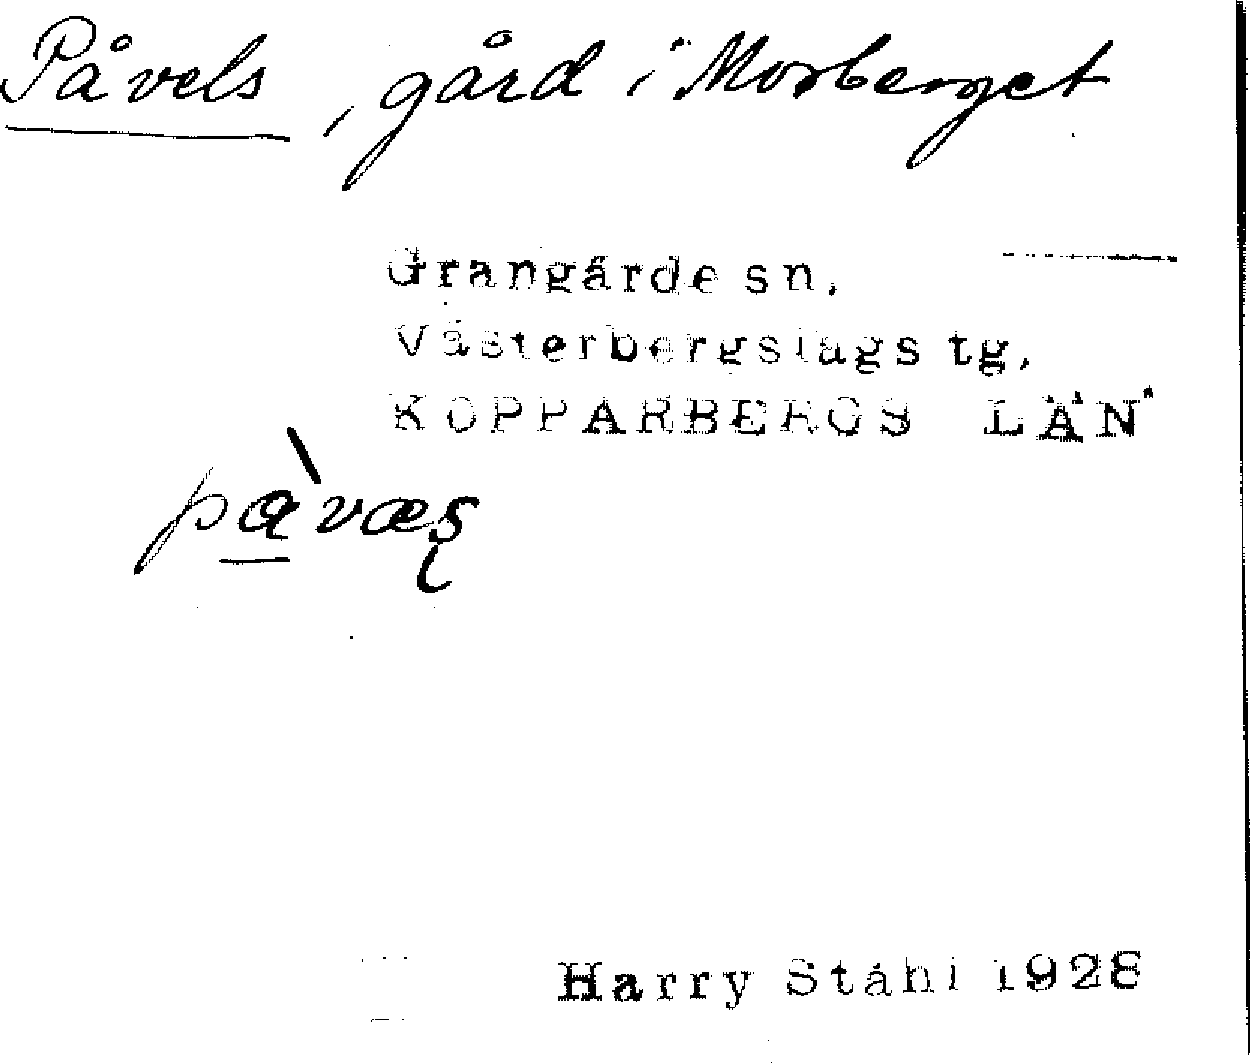 Påvels, gård i Morberget
Grangärde sn,
Västerbergslags tg,
KOPPARBERGS LÄN
pà̲væș
Harry Ståhl 1928